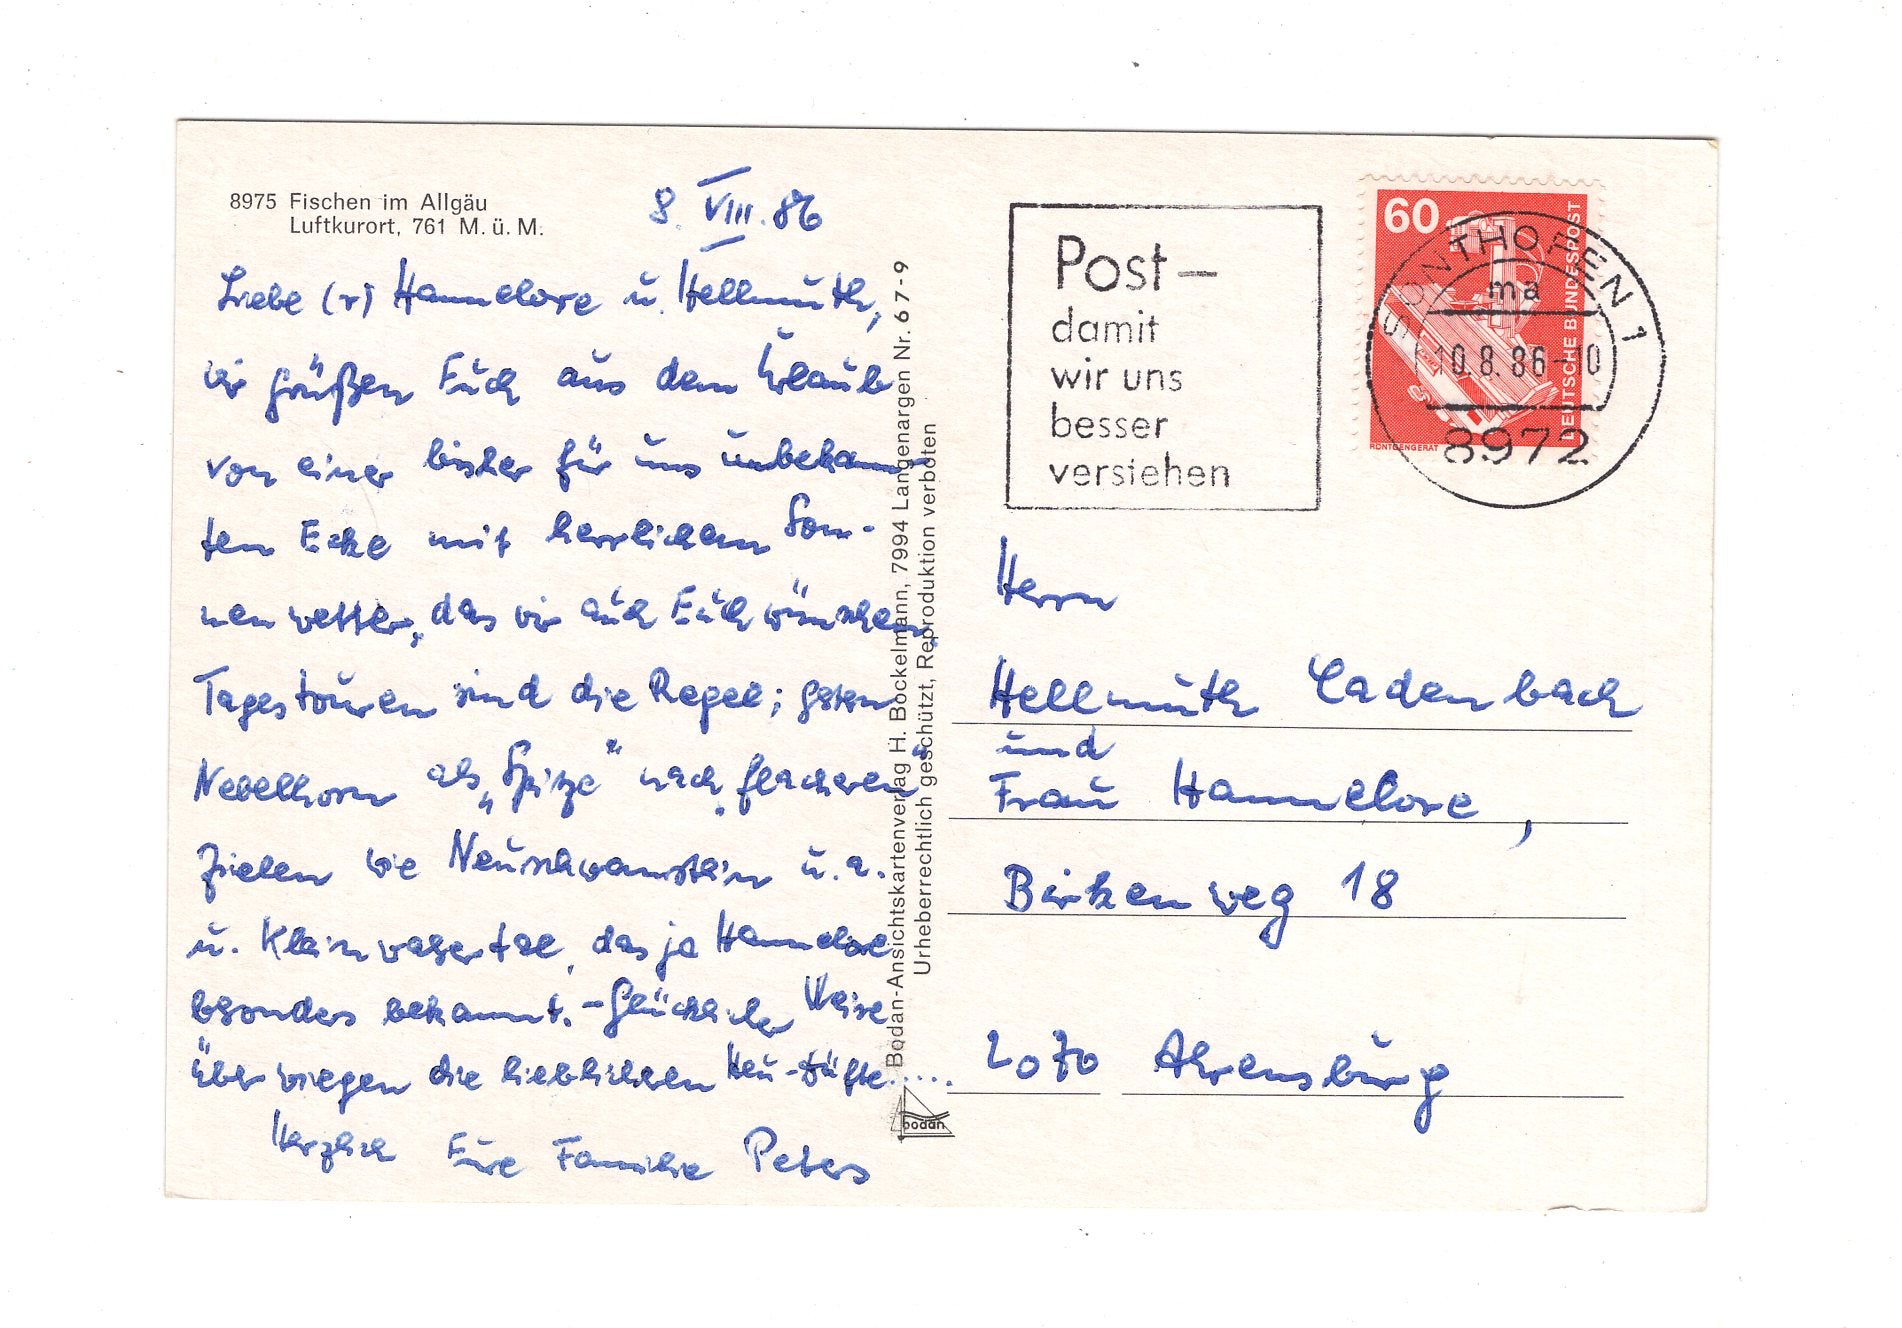 8975 Fischen im Allgäu
Luftkurort, 761 M. ü. M.
8. VIII. 86
Liebe (r) Hannelore u. Hellmuth,
wir grüßen Euch aus dem Urlaub
von einer bisher für uns unbekann-
ten Ecke mit herrlichem Son-
nenwetter, das wir auch Euch wünschen.
Tagestouren sind die Regel; gestern
Nebelhorn als „Spitze" nach „flacheren"
Zielen wie Neuschwanstein u. a.
u. Kleinwalsertal, das ja Hannelore
besonders bekannt. - Glücklicher Weise
überwiegen die lieblichen Heu-Düfte.....
Herzlich Eure Familie Peters
Bodan-Ansichtskartenverlag H. Bockelmann, 7994 Langenargen Nr. 67-9
Urheberrechtlich geschützt, Reproduktion verboten
bodan
Post-
damit
wir uns
besser
verstehen
60
DEUTSCHE BUNDESPOST
RÖNTGENGERÄT
SONTHOFEN 1
ma
10.8.86-10
8972
Herrn
Hellmuth Cadenbach
und
Frau Hannelore,
Birkenweg 18
2070 Ahrensburg